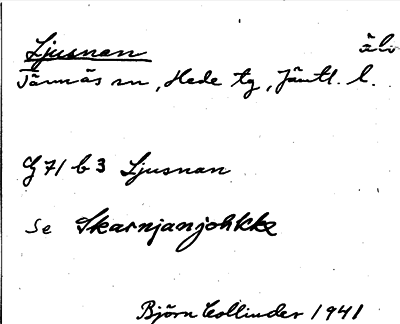 Ljusnan älv
Tännäs sn, Hede tg, Jämtl. l.
G 71 b 3 Ljusnan
se Skarnjanjohkke
Björn Collinder 1941